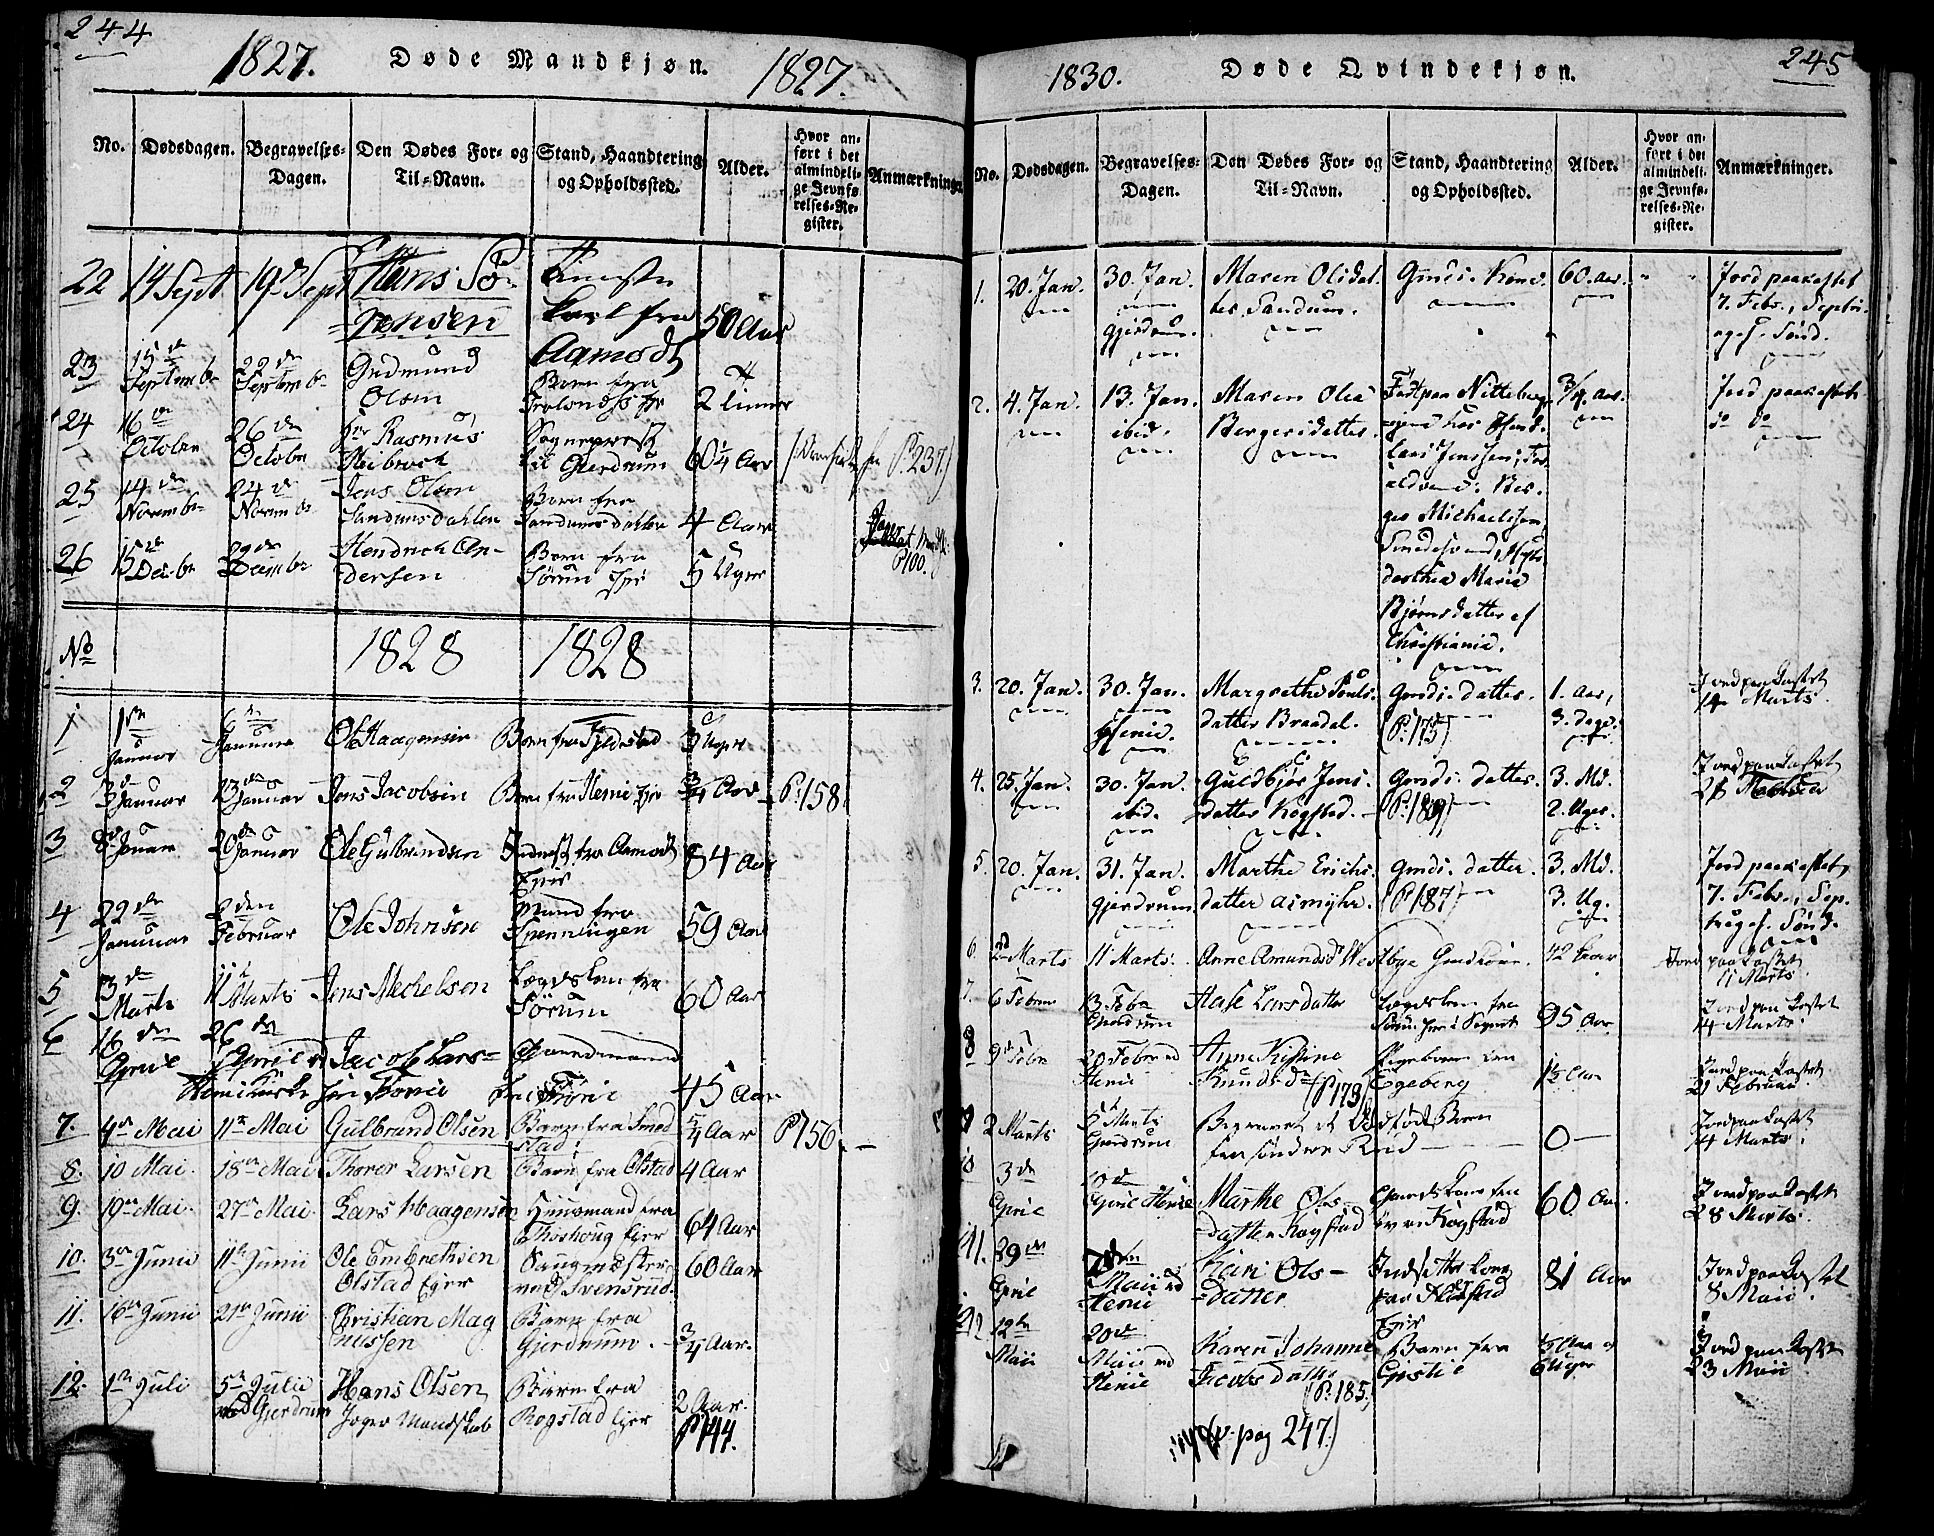 244
1827. Døde Mandkjøn. 1827.
No. Dødsdagen. Begravelses-Dagen. Den Dødes For- og Til-Navn. Stand, Haandtering og Opholdssted. Alder. Hvor anført i det almindelige Jevnførelses-Register. Anmærkninger
22 14 Sept 19de Sept Hans Sørensen Tieneste Karl fra Aamodt 50 Aar
23 15de Septembr 22de Septembr Gudmund Olsen Barn fra 2 Timer
24 16de October 26de Octobr Hr Rasmus Heibroch Sogneprest til Gierdrum 60 1/4 Aar P. 237.)
25 14de Novembr 24de Novembr Jens Olsen Sandumsdahlen Barn fra Sandumsdahlen 4 Aar
26 15de Decembr 29de Decembr Hendrich Andersen Barn fra Sørum Ejer 5 Uger P 100.
No 1828 1828
1 1ste Januar 6te Januar Ole Haagensen Barn fra Fjeldstad 3 Uger
2 3de Januar 23de Januar Jens Jacobsen Barn fra Heni Ejer 3/4 Aar P. 158
3 8de Januar 20de Januar Ole Gulbrandsen Inderst fra Aamodt Ejer 84 Aar
4 22de Januar 2den Februar Ole Johnsen Mand fra Spenningen 59 Aar
5 3de Marts 11te Marts Jens Mechelsen Lægdslem fra Sørum 60 Aar
6 16de April 26de April ved Heni Kirke Jacob Larsen Fonie Gaardmand fra Fonie 45 Aar
7. 4de Mai 11te Mai Gulbrand Olsen Barn fra Smedstad 5/4 Aar P 156.
8. 10 Mai. 18de Mai Thorer Larsen Barn fra Olstad 4 Aar
9. 19de Mai. 27de Mai. Lars Haagensen Huusmand fra Thoshoug Ejer 64 Aar
10. 3de Junii 11te Junii Ole Embrethsen Olstad Ejer Saugmester ved Svensrud. 60 Aar
11. 16de Junii 21de Junii Christian Magnussen Barn fra Gjerdrum. 3/4 Aar.
12. 1ste Juli 5te Julii ved Gjerdrum Hans Olsen Barn fra Rogstad Ejer 2 Aar.
Jager Mandskab P 144.
245
1830. Døde Qvindekjøn.
No. Dødsdagen. Begravelses-Dagen. Den Dødes For- og Til-Navn. Stand, Haandtering og Opholdssted. Alder. Hvor anført i det almindelige Jevnførelses-Register. Anmærkninger.
1. 20. Jan. 30. Jan. Gjerdrum. Maren Olsdatter Sandum. Gmds. Kone. 60. Aar. Jord paakastet 7. Febr., Septuages. Sønd.
2. 4. Jan. 13. Jan. ibid. Maren Olea Bergersdatter. Født paa Nitteberg Michaelsen, Dorthea Maria Bjørnsdatter af Christiania. 3/4. Aar. Jord paakastet do do
3. 20. Jan. 30. Jan. Henie. Margrethe Poulsdatter Braadal. Gmds. datter. (P. 175) 1. Aar, 3. Dage. Jord paakastet 14 Marts
4. 25. Jan. 30. Jan. ibid. Guldbjør Jensdatter Kogstad. Gmds. datter. (P. 189) 3. Md. 2. Uger. Jord paakastet
5. 20. Jan. 31. Jan. Gjerdrum. Marthe Erichsdatter Asmyhr. Gmds. datter. (P. 187) 3. Md. 3. Ug. Jord paakastet 7. Febr., Septuages. Sønd.
6. 2 Marts 11 Marts. Anne Amundsdr Westbye Gmdkone. 42 Aar Jord paakastet 11 Marts.
7. 6 Februar 13 Febr Gierdrum Aase Larsdatter Lægdslem fra Sørum 95 Aar Jord paakastet 14 Marts
8 9de Febr 20 Febr ved Henie Anne Kistine Knudsdr (P 179) Pigebarn fra Egeberg 1 1/2 Aar Jord paakastet 21 Februar
9 2 Marts 5te Marts Gierdrum Begravet et Dødfødt Barn fra søndre Ruud 0 Jord paakastet 14 Marts.
10 3de April 10de April Henie Marthe Olsdatter Kogstad Gaardkone fra øvre Kogstad 60 Aar. Jord paakastet 28 Marts.
11. 29de April Maii ved Henie Kari Olsdatter Indsidderkone fra Ejer 81 Aar Jord paakastet 8 Maii.
12 12te Maii 20de Maii ved Henie Karen Johanne Jacobsdatter (P. 185.) Barn fra 6 Uger Jord paakastet 23 Maii
pag 247.)